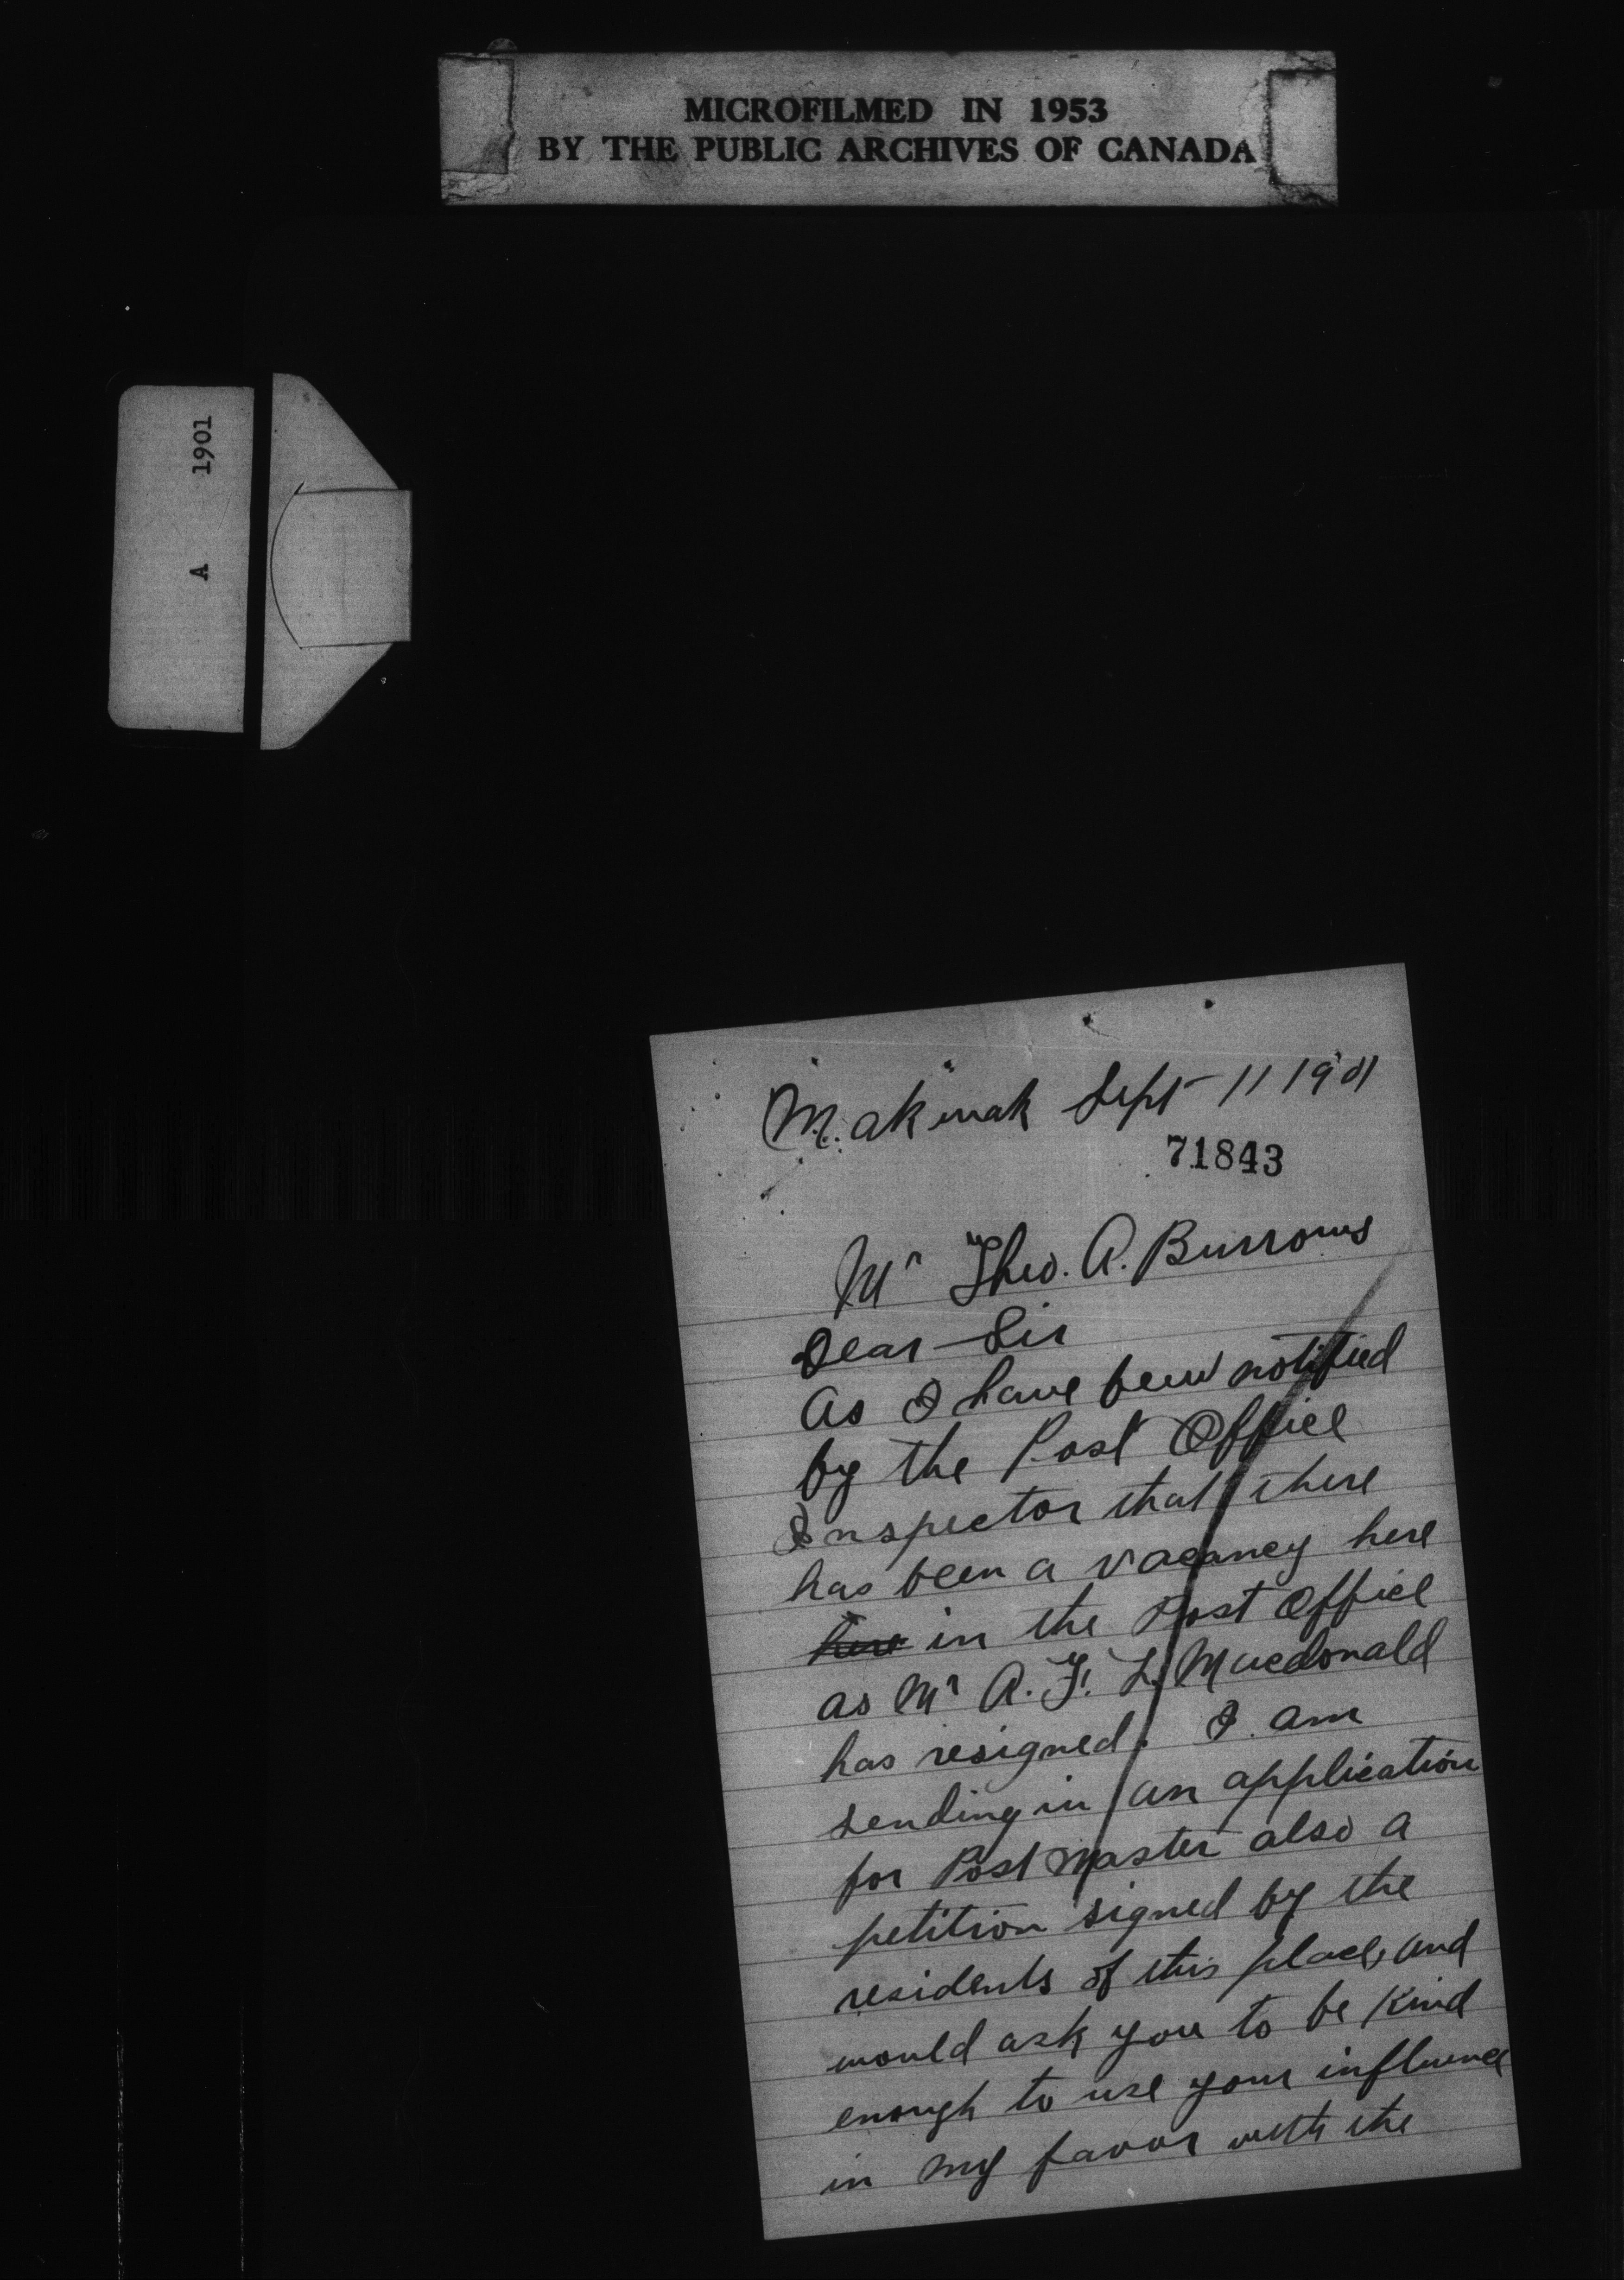 MICROFILMED IN 1953
BY THE PUBLIC ARCHIVES OF CANADA
A 1901
Makinak Sept 11 1901
71843
Mr Theo. A. Burrows
Dear Sir
As I have been notified
by the Post Office
Inspector that there
has been a vacancy here
here in the Post Office
as Mr A. F. L. Macdonald
has resigned. I am
sending in an application
for Post Master also a
petition signed by the
residents of this place, and
would ask you to be kind
enough to use your influence
in my favor with the